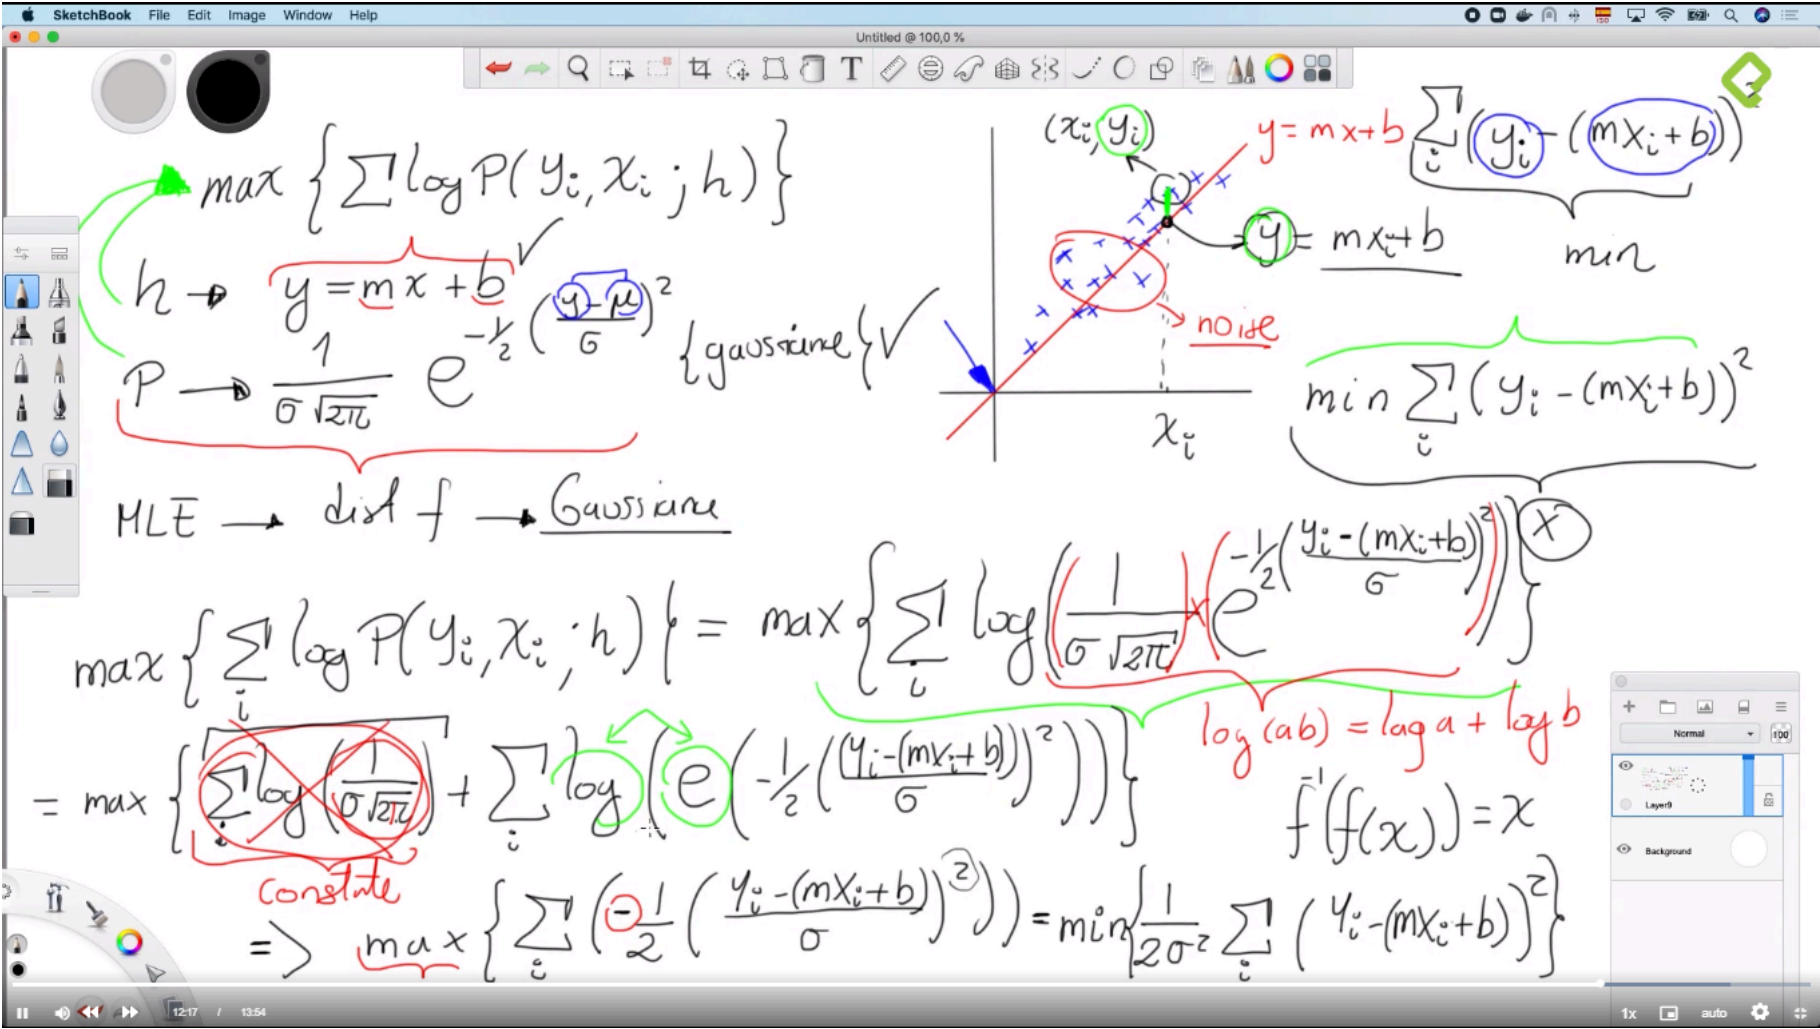 SketchBook File Edit Image Window Help
ISO
Untitled @ 100,0 %
max { ∑ log P( yi, xi ; h) }
h → y = mx + b ✓
P → 1/(σ√2π) e^(-1/2 ((y-μ)/σ)^2) {gaussiana{ ✓
MLE → dist f → Gaussiana
(xi, yi)
y = mx+b
y = mxi+b
noise
xi
∑i (yi - (mxi+b))^2
min
min ∑i (yi - (mxi+b))^2
max { ∑i log P(yi, xi ; h) } = max { ∑i log((1/(σ√2π)) x (e^(-1/2 ((yi-(mxi+b))/σ)^2))) } x
log(ab) = log a + log b
= max { ∑i log(1/(σ√2π)) + ∑i log(e(-1/2 (((yi-(mxi+b))/σ)^2))) }
constate
f^-1(f(x)) = x
=> max { ∑i (-1/2 ((yi-(mxi+b))/σ)^2)) = min{ 1/2σ^2 ∑i (yi-(mxi+b))^2 }
Normal
100
Layer9
Background
12:17 / 13:54
1x auto